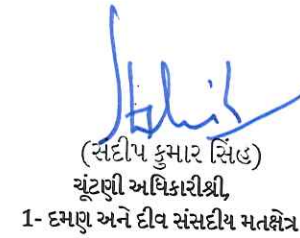 (સંદીપ કુમાર સિંહ)
ચૂંટણી અધિકારીશ્રી,
1- દમણ અને દીવ સંસદીય મતક્ષેત્ર